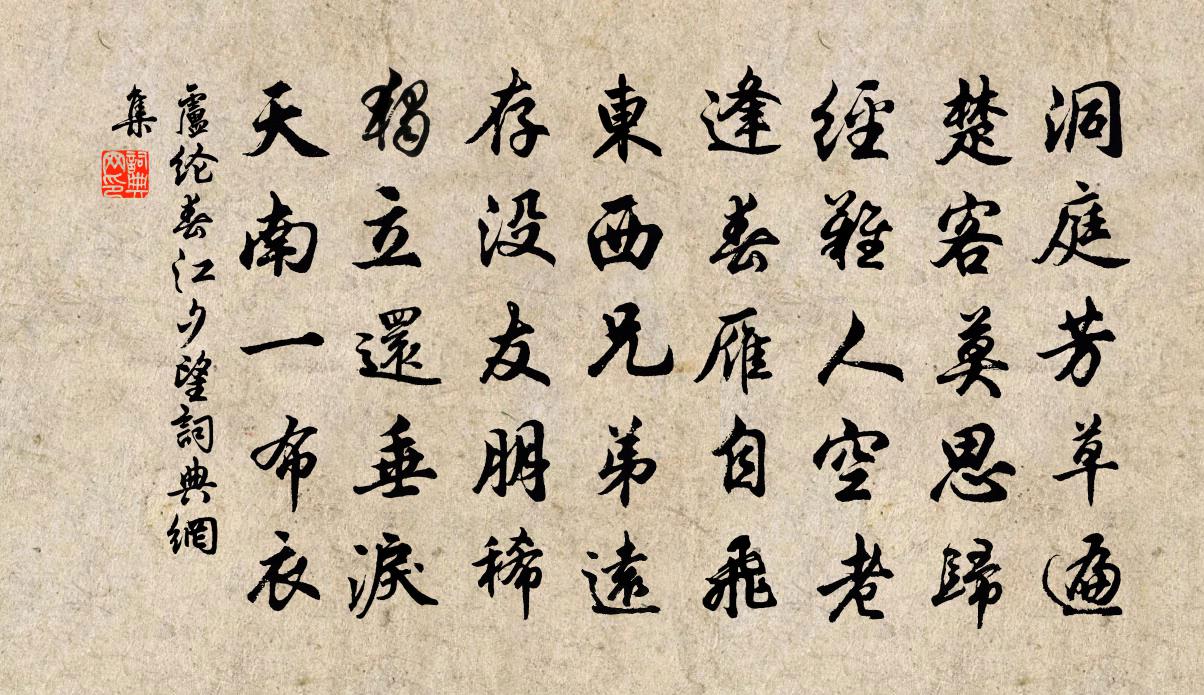 洞庭芳草遍
楚客莫思歸
經難人空老
逢春雁自飛
東西兄弟遠
存没友朋稀
獨立還垂淚
天南一布衣
盧纶春江夕望詞典網
集
詞典
网印